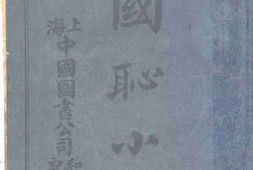 國恥小
上海中國圖書公司和記